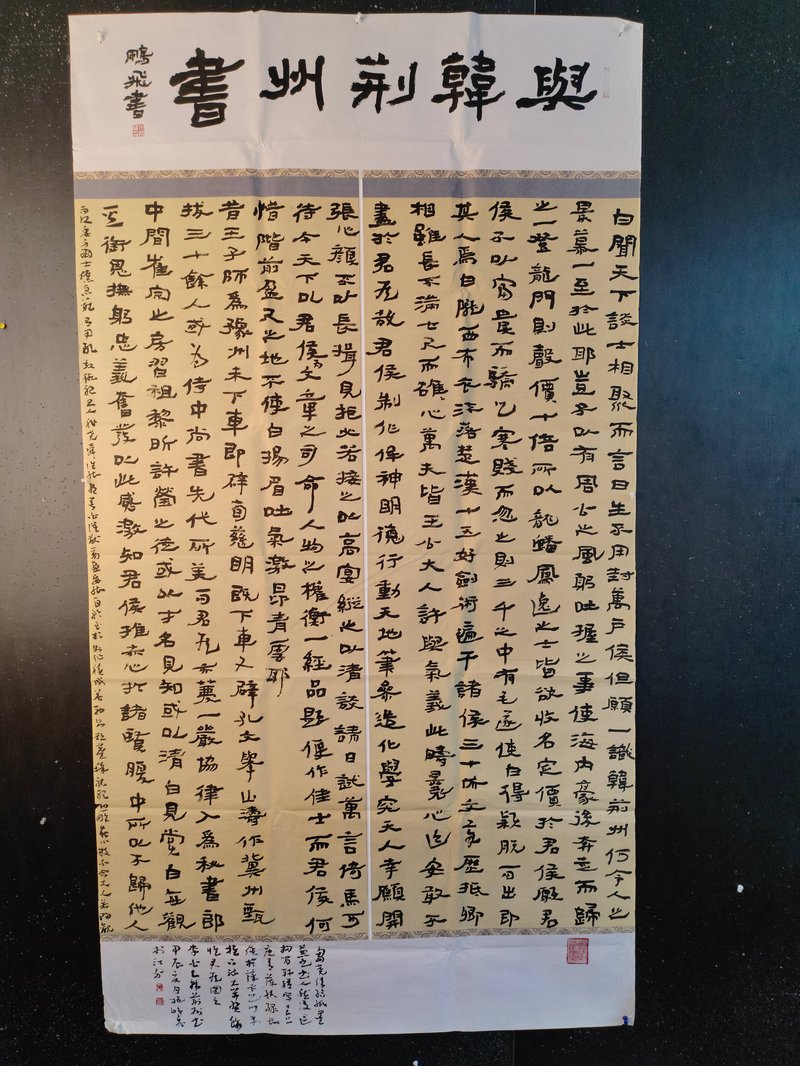 與韓荆州書
鵬飛書
白聞天下談士相聚而言曰生不用封萬户侯但願一識韓荊州何令人之
景慕一至於此耶豈不以有周公之風躬吐握之事使海内豪俊奔走而歸
之一登龍門則聲價十倍所以龍蟠鳳逸之士皆欲收名定價於君侯願君
侯不以富貴而驕之寒賤而忽之則三千之中有毛遂使白得穎脱而出即
其人焉白隴西布衣流落楚漢十五好劍術遍干諸侯三十成文章歷抵卿
相雖長不滿七尺而雄心萬夫皆王公大人許與氣義此疇曩心迹安敢不
盡於君侯哉君侯制作侔神明德行動天地筆參造化學究天人幸願開
張心顏不以長揖見拒必若接之以高宴縱之以清談請日試萬言倚馬可
待今天下以君侯為文章之司命人物之權衡一經品題便作佳士而君侯何
惜階前盈尺之地不使白揚眉吐氣激昂青雲耶
昔王子師為豫州未下車即辟荀慈明既下車又辟孔文舉山濤作冀州甄
拔三十餘人或為侍中尚書先代所美而君侯亦薦一嚴協律入為秘書郎
中間崔宗之房習祖黎昕許瑩之徒或以才名見知或以清白見賞白每觀
其銜恩撫躬忠義奮發以此感激知君侯推赤心於諸賢腹中所以不歸他人